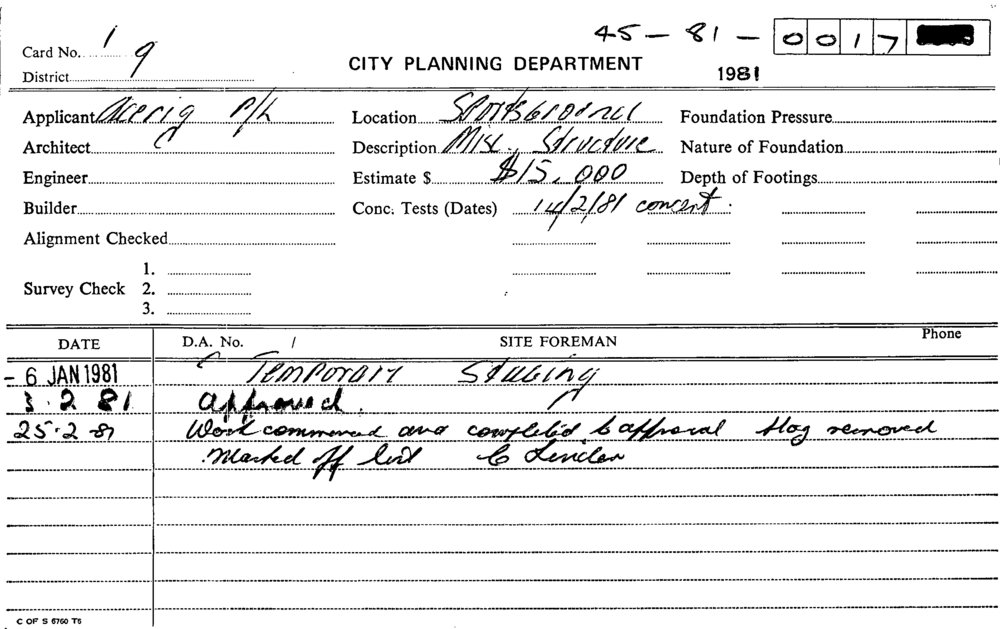 45 - 81 - 0017
Card No. 1
9
District
CITY PLANNING DEPARTMENT
1981
Applicant Acerig P/L
Location Sportsground
Foundation Pressure
Architect
Description Misc. Structure
Nature of Foundation
Engineer
Estimate $ $15,000
Depth of Footings
Builder
Conc. Tests (Dates) 14/2/81 concert.
Alignment Checked
1.
Survey Check 2.
3.
DATE D.A. No. / SITE FOREMAN Phone
- 6 JAN 1981 (Temporary Staging)
3.2 81 Approved.
25.2.81 Work commenced and completed to approval flag removed
Marked off list C
C OF S 6760 T6